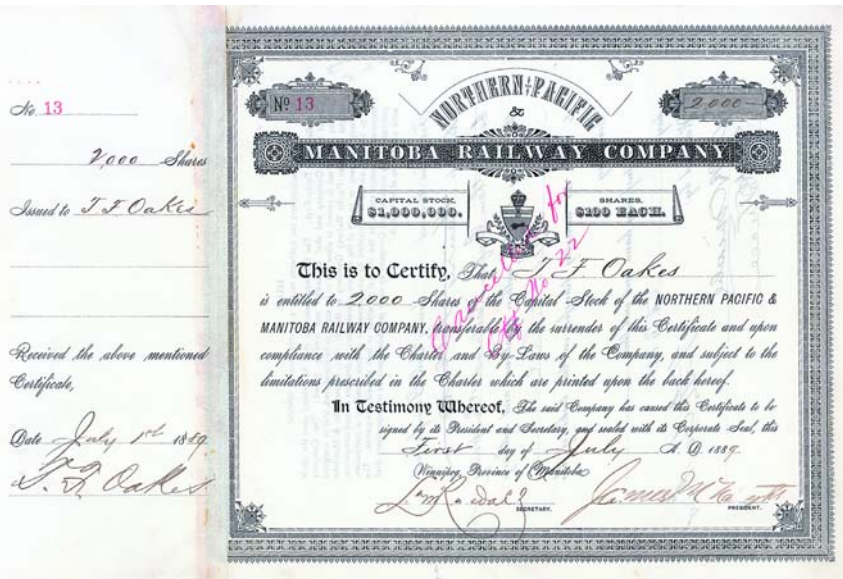 No. 13
2,000 Shares
Issued to T F Oakes
Received the above mentioned
Certificate,
Date July 1st 1889
T. F. Oakes
Nº 13
NORTHERN PACIFIC
2,000
&
MANITOBA RAILWAY COMPANY
CAPITAL STOCK,
$1,000,000.
SHARES,
$100 EACH.
Cancelled for
Ctf No 22
This is to Certify, That T F Oakes
is entitled to 2000 Shares of the Capital Stock of the NORTHERN PACIFIC &
MANITOBA RAILWAY COMPANY, transferable by the surrender of this Certificate and upon
compliance with the Charter and By-Laws of the Company, and subject to the
limitations prescribed in the Charter which are printed upon the back hereof.
In Testimony Whereof, The said Company has caused this Certificate to be
signed by its President and Secretary, and sealed with its Corporate Seal, this
First day of July A. D. 1889.
Winnipeg, Province of Manitoba
SECRETARY.
PRESIDENT.